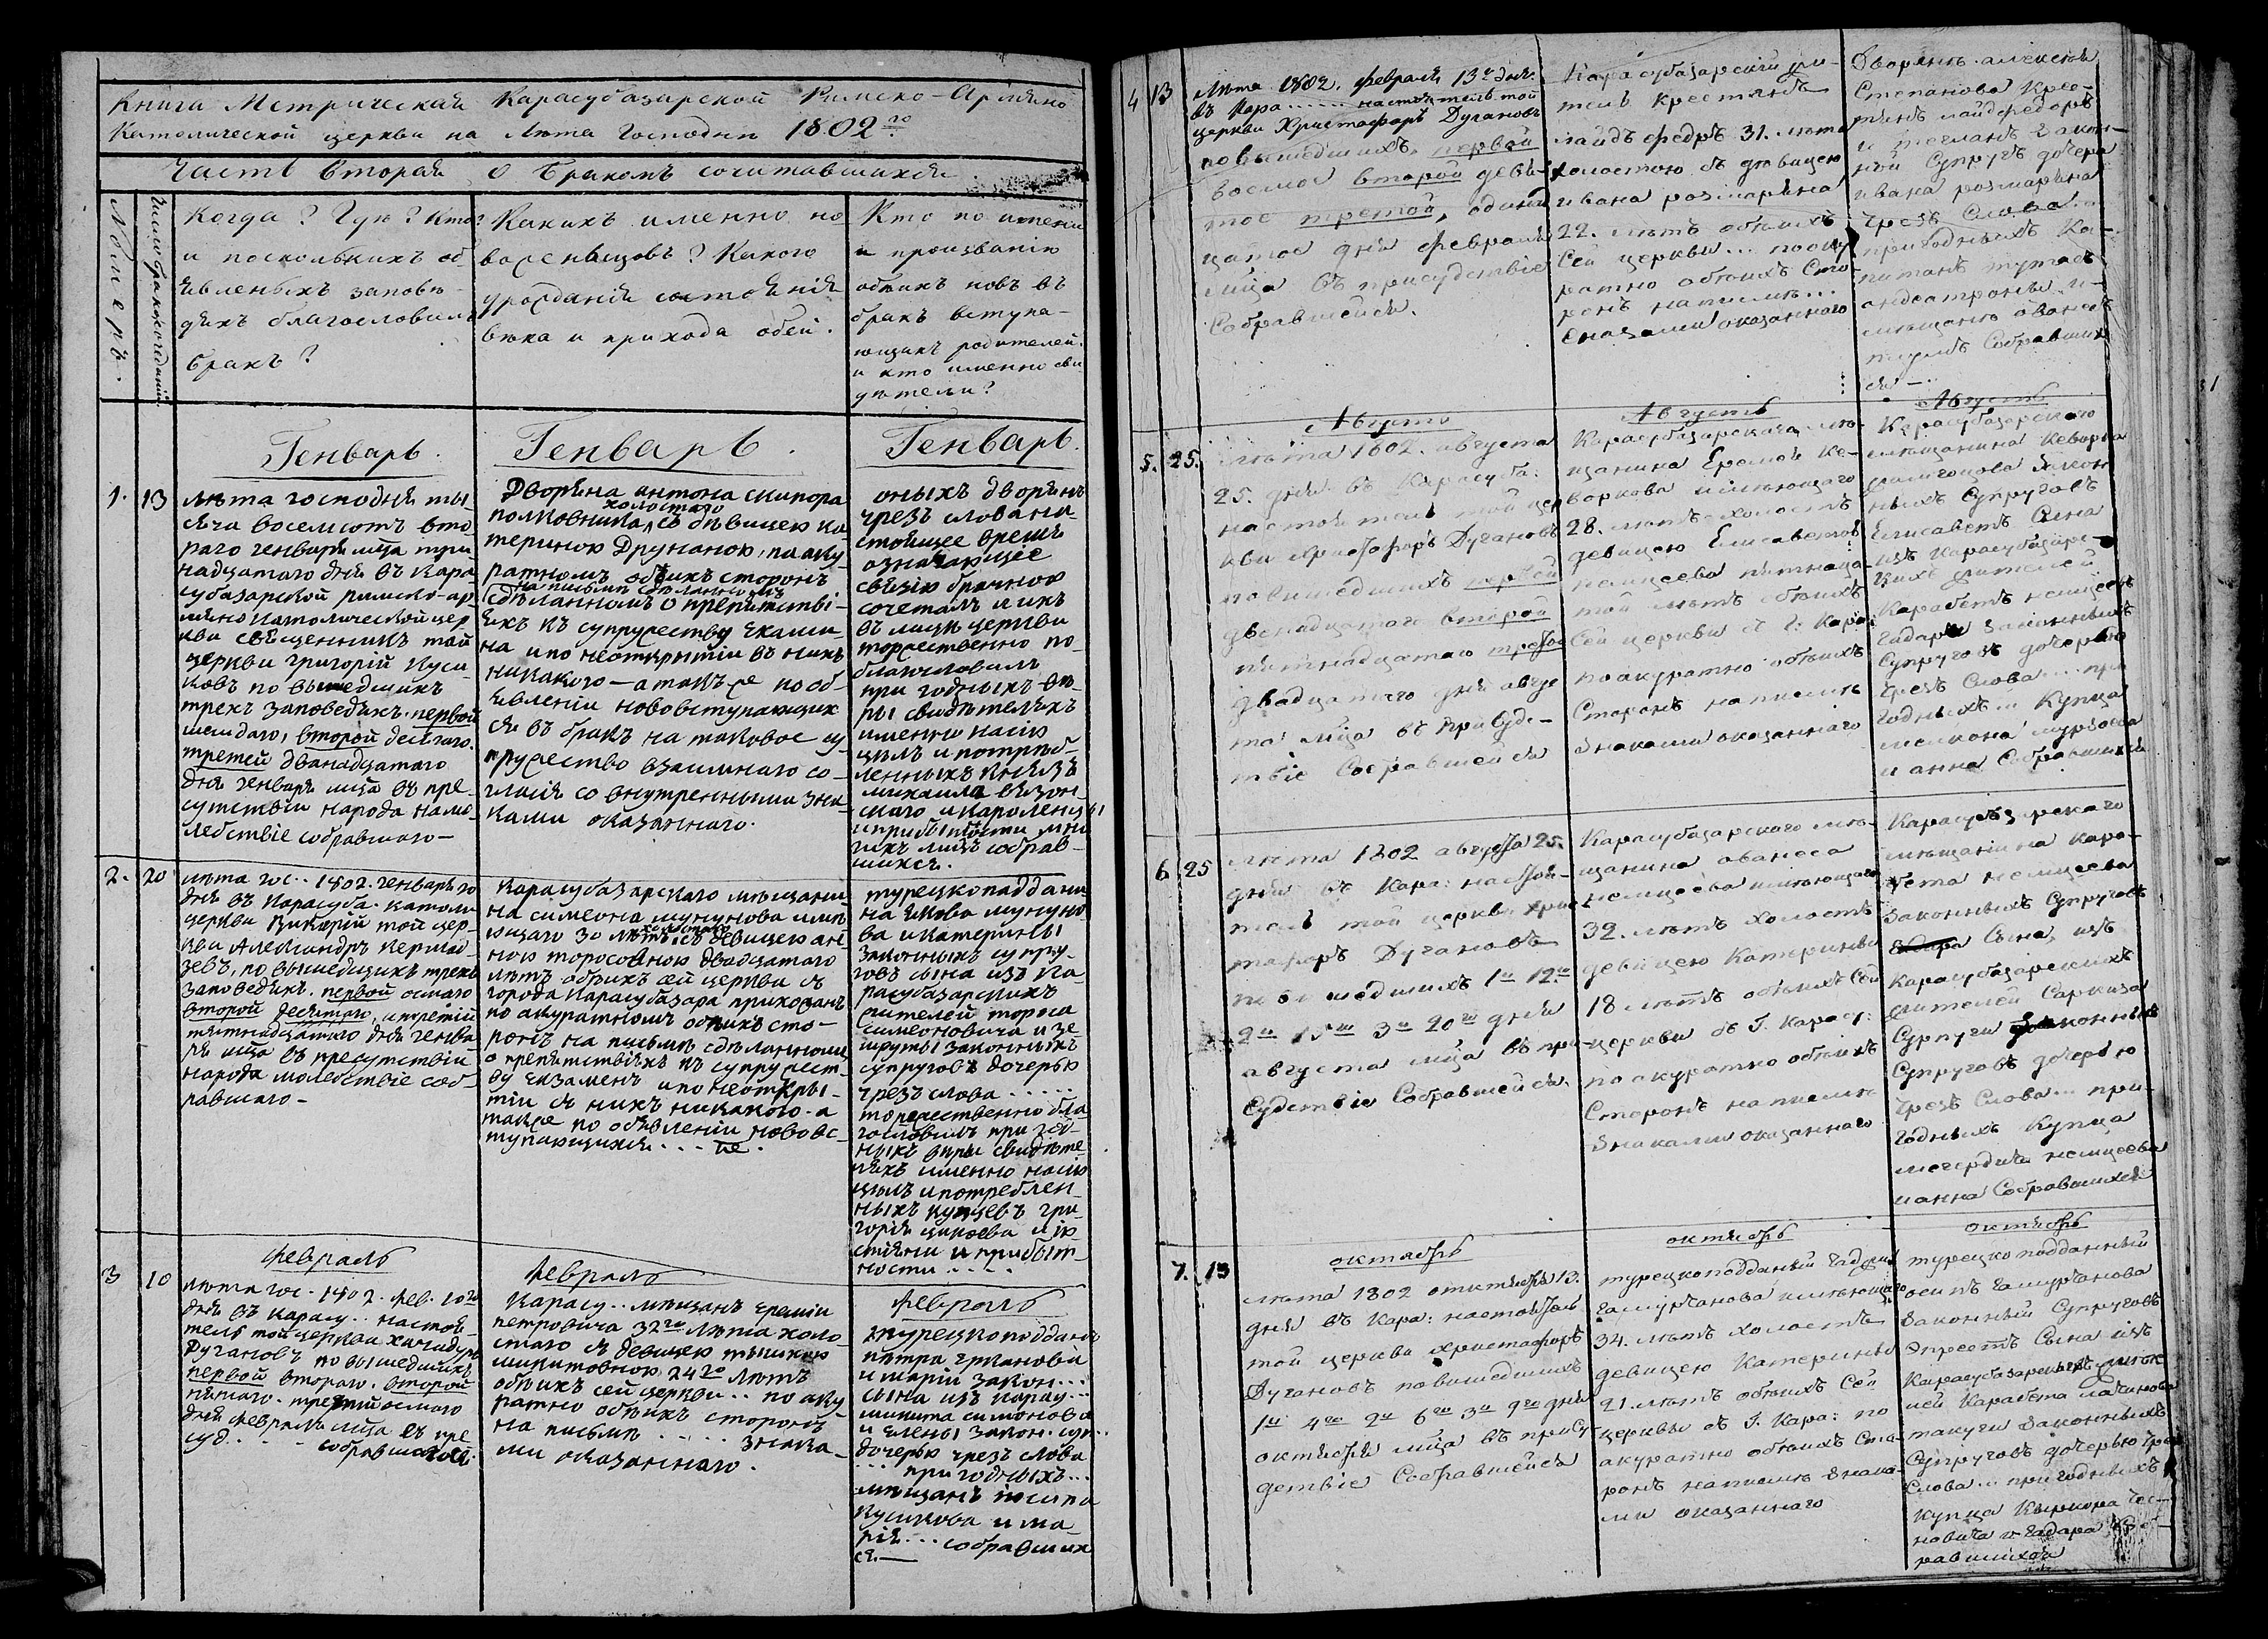 Книга Метрическая Карасубазарской Римско-Армяно
Католической церкви на Лѣта Господня 1802го
Часть вторая о Бракомъ сочитавшихся.
Номеръ.
Число бракосочетаній.
Когда? Гдѣ? Кто?
и посколькихъ об-
явленыхъ заповѣ-
дяхъ благословилъ
бракъ?
Какихъ именно но-
вобрачныхъ? Какого
урожданія состоянія
вѣка и прихода обеи.
Кто по имени
и прозванію
обоихъ новъ въ
бракъ вступа-
ющихъ родителей.
и кто именно сви-
дѣтели?
Генварь.
Генварь.
Генварь.
1.
13
лѣта господня ты-
сяча восемсотъ вто-
раго генваря мца три-
надцатаго дня въ Кара-
субазарской римско-ар-
мяно католической цер-
кви священникъ той
церкви григорій Куси-
ковъ по вышедшихъ
трехъ заповедяхъ. первой
шестаго, второй десятаго.
третей дванадцатаго
дня генваря мца въ пре-
сутствіи народа на мо-
лебствіе собравшаго-
Дворяна антона скипора
холостаго
полковника, съ дѣвицею ка-
териною Друнаною, по аку-
ратномъ обѣихъ сторонъ
на письмѣ сдѣланномъ
сдѣланномъ о препятстві-
яхъ къ супружеству екзами-
на и по неоткрытіи въ нихъ
никакого - а такъ же по об-
явленіи нововступающих
ся въ бракъ на таковое су-
пружество взаимнаго со-
гласія со внутренными зна-
ками оказаннаго.
оныхъ дворянъ
чрезъ слова на-
стоящее время
означающее
связію брачною
сочеталъ и ихъ
въ лицѣ церкви
торжественно по-
благословилъ
при годныхъ вѣ-
ры свидѣтеляхъ
именно на сію
цѣль и потреб-
ленныхъ Князѣ
михаила вязон-
скаго и Кароленцы
и прибытности мно-
гихъ лицъ собрав-
шихся.
2.
20
лѣта гос.. 1802. генваря 20
дня въ Карасуба. католи-
церкви Викарій той цер-
кви Александръ Кермо-
зевъ, по вышедщихъ трехъ
заповедяхъ. первой осмаго
второй десятаго, и третій
пятнадцатаго дня генва-
ря мца въ пресутствіи
народа молебствіе соб-
равшаго -
Карасубазарскаго мѣщани-
на симеона мунунова имѣ-
холостаго
ющаго 30 лѣтъ, съ девицею ан-
ною торосовною двадцатаго
лѣтъ обѣихъ сей церкви съ
города Карасубазара прихожанъ
по акуратномъ обѣихъ сто-
ронъ на письмѣ сдѣланномъ
о препятствіяхъ къ супружест-
ву екзаменъ и по неоткры-
тіи съ нихъ никакого. а
также по обявленіи новові-
тупающихся ... пе.
турецкоподдани-
на якова мунуно-
ва и катерины
законныхъ супру-
говъ сына изъ ка-
расубазарскихъ
жителей тороса
симеоновича и зе
мруты законныхъ
супруговъ дочерью
чрезъ слова ....
торжественно бла-
гословилъ при год-
ныхъ вѣры свидѣте-
ляхъ именно на сію
цѣль и потреблен-
ныхъ купцевъ гри-
горія цакоева и ію-
стіяни и прибыт-
ности ....
Февраль
Февраль
Февраль
3
10
лѣта гос. 1802. фев. 10го
дня въ карасу.. настоя-
тель той церкви хачадуръ
Дугановъ по вышедшихъ
первой втораго, второй
пятаго. третій осмаго
дня февраля мца въ пре
суд. . . . собравшагося.
Карасу.. мѣщанъ еремія
петровича 32го лѣта холо-
стаго съ девицею тыикою
микитовною 24го лѣтъ
обѣихъ сей церкви .. по аку-
ратно обѣихъ сторонъ
на письмѣ ..... знака-
ми оказаннаго.
турецкоподданъ
петра ергановіи
и маріи закон...
сына изъ карасу...
микита симонова
и елены закон. суп...
дочерью чрезъ слова
... при годныхъ...
мѣщанъ іосипа
кусикова и ма-
рія... собравших
ся.—
4
13
Лѣта 1802. февраля 13го дня.
въ Кара...... настоятель той
церкви Христафоръ Дугановъ
повышедшихъ, первой
восмое второй девя-
тое третой, одина-
цатое дня февраля
мца въ присудствіе
Собравшейся.
Карасубазарскій жи-
тель крестянъ
пайдъ федръ 31. лѣта
холостою съ дѣвицею
ивана розмарина
22. лѣтъ обѣихъ
Сей церкви ... по аку
ратно обѣихъ Сто-
ронъ написмѣ...
Знаками оказаннаго
Дворянъ. алексея
Степанова Крес-
тянъ пайдфедоръ
ной Супругъ дочеръ
ивана розмарина
Чрезъ Слова...
пригодныхъ Ка-
питанъ
мѣщанъ ованесъ
Собравших
ся -.
Августъ
Августъ
Августъ
5.
25.
лѣта 1802. августа
25. дня въ Карасуба:
настоятель той цер
кви христофоръ Дугановъ
повышедшихъ первой
двенадцатаго второй
пятнадцатаго третой
двадцатаго дня авгус
та мца въ присуд-
твіе Собравшейся
Карасубазарскага мѣ-
щанина Еремоя Ке-
воркова имѣющаго
28. лѣтъ холостъ
девицею Елисавета
немцеева пятнаца-
той лѣтъ обѣихъ
Сей церкви съ Г: Кара:
поакуратно обѣихъ
Сторонъ написмѣ
Знаками оказаннаго
Карасубазарскаго
мѣщанина Кеворка
Закон
ныхъ Супруговъ
Елисаветъ Сына
изъ Карасубазарс-
кихъ жителей
Карабетъ немцеевъ
Гадары Законныхъ
Супруговъ дочерью
Чрезъ Слова... при
годныхъ... Купца
мелкона мурзоева
и анна Собравшихся
6
25
лѣта 1802 августа 25.
дня въ Кара: настоя-
тель той церкви хрис
тафоръ Дугановъ
повышедшихъ 1й 12го
2й 15го 3й 20го дня
августа мца въ при-
Судствіе Собравшейся.
Карасубазарскаго мѣ-
щанина аванеса
немцеева имѣющаго
32. лѣтъ холостъ
девицею Катерины
18 лѣтъ обѣихъ Сей
церкви въ Г. Карасу:
по акуратно обѣихъ
Сторонъ написмѣ
Знаками оказаннаго
Карасубазарскаго
мѣщанина кара-
бета немцеева
Законныхъ Супруговъ
Гадара Сына, изъ
Карасубазарскихъ
жителей Саркиза
Супруги Законныхъ
Супруговъ дочерью
Чрезъ Слова... при-
годныхъ Купца
мегердича немцеева
и анна Собравшихся
октябрь
октябрь
октябрь
7.
13
лѣта 1802 октября 13.
дня въ Кара: настоятель
той церкви христафоръ
Дугановъ повышедшихъ
1й 4го 2й 6го 3й 9го дня
октября мца въ присуд
детвіе Собравшейся
турецкоподданый
Гамурчанова имѣющаго
34. лѣтъ холостъ
девицею Катерины
21. лѣтъ обѣихъ Сей
церквы въ Г. Кара: по
акуратно обѣихъ Сто-
ронъ написмѣ Знака-
ми оказаннаго
турецкоподданный
осипъ Гамурчанова
Законный Супруговъ
Сына изъ
Карасубазарскихъ жите
лей Карабета
Законныхъ
Супруговъ дочерью чрез
Слова... пригодныхъ
Купца
новича и Гадара Соб-
равшихся